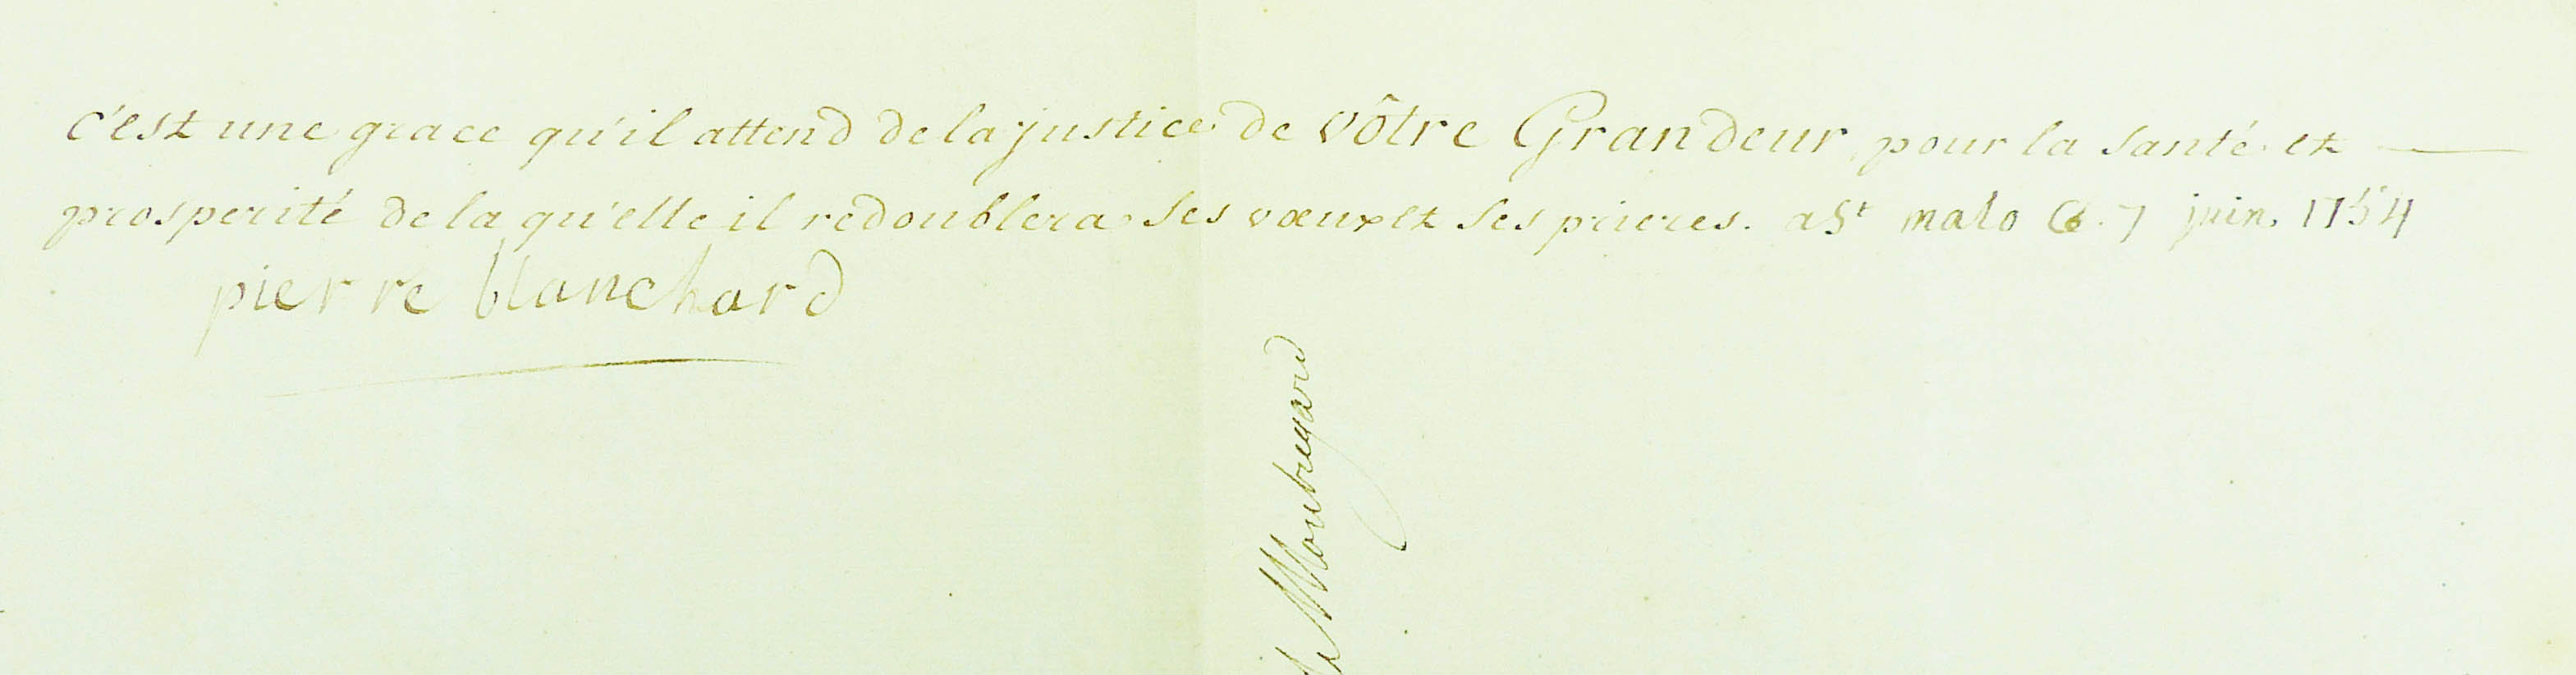 c'est une grace qu'il attend de la justice de vôtre Grandeur pour la santé et
prosperité de la qu'elle il redoublera ses vœux et ses prieres. a St malo Ce 7 juin. 1754
pierre blanchard
de Montregard